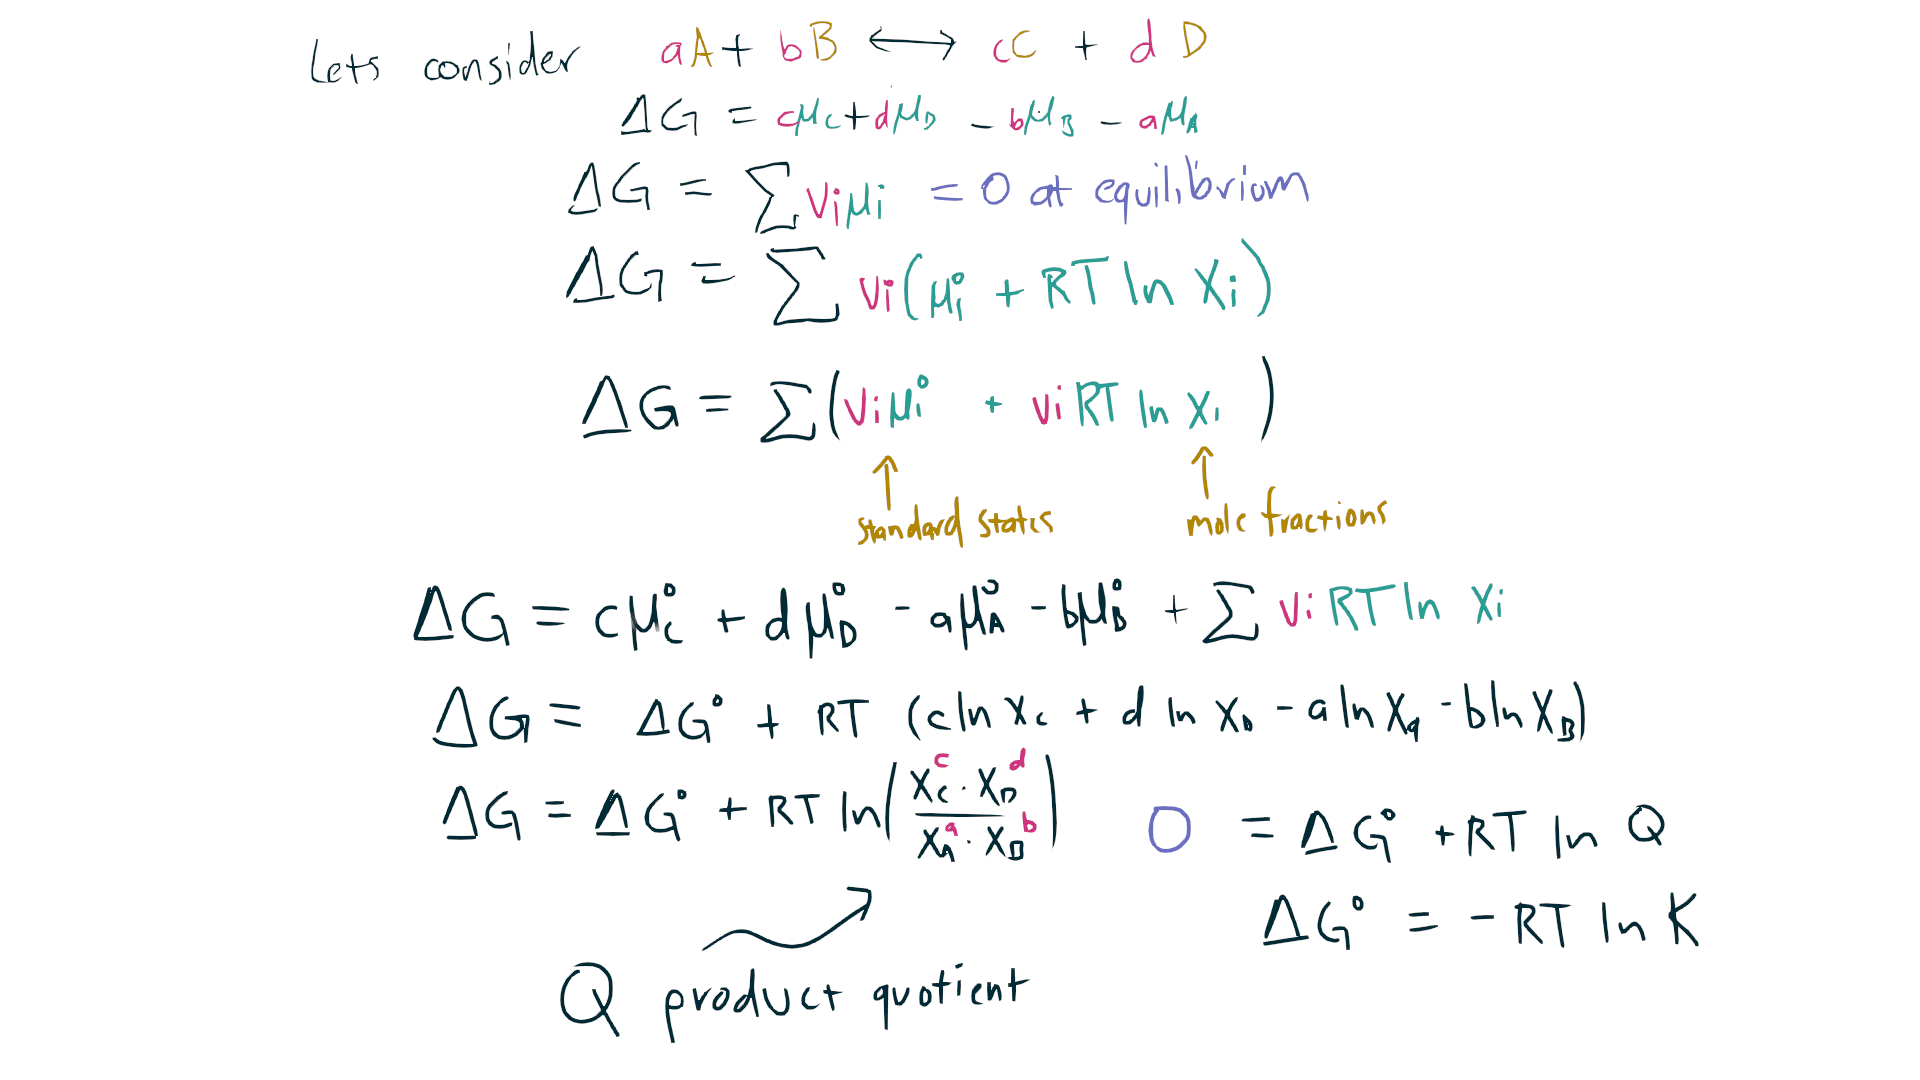 Lets consider aA + bB ⟷ cC + dD
ΔG = cμ_C + dμ_D - bμ_B - aμ_A
ΔG = ∑ νiμi = 0 at equilibriom
ΔG = ∑ νi(μi° + RT ln Xi)
ΔG = ∑(νiμi° + νiRT ln Xi)
↑ ↑
standard states mole fractions
ΔG = cμ_C° + dμ_D° - aμ_A° - bμ_B° + ∑ νiRT ln Xi
ΔG = ΔG° + RT (c ln X_C + d ln X_D - a ln X_A - b ln X_B)
ΔG = ΔG° + RT ln(X_C^c · X_D^d / X_A^a · X_B^b)
0 = ΔG° + RT ln Q
ΔG° = -RT ln K
Q product quotient